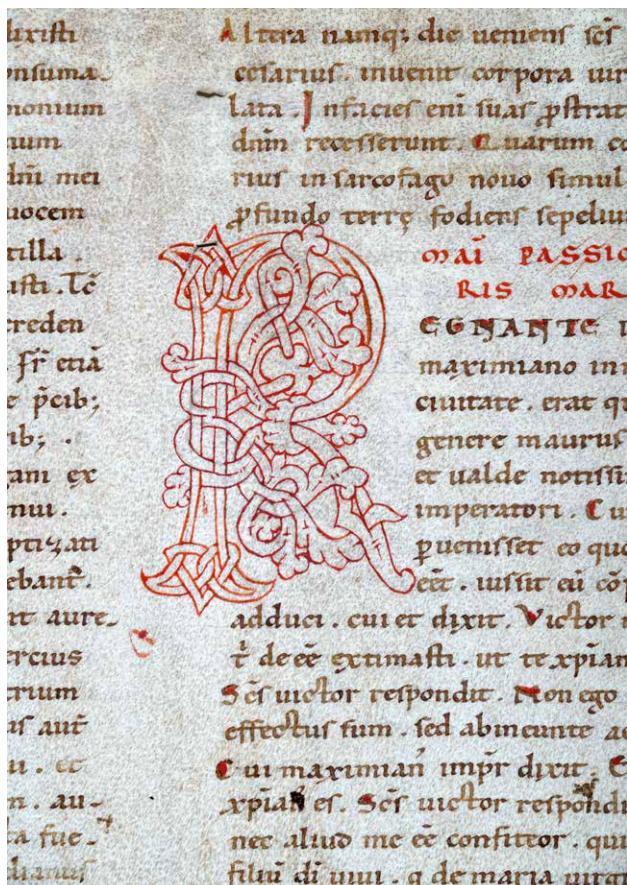 luxisti
onsuma-
monium
ium
dnī mei
uocem
tilla .
usti . Tē
creden
. fr̄ etiā
e p̄cib;
ib; .
am ex
nui .
ptizati
ebant̄ .
nt aure-
rcius
trium
us aut̄
ui . et
n . au-
ta fue-
Altera namq; die ueniens sc̄s
cesarius . inuenit corpora uir
lata . Infacies eni suas ꝓstrat
dnm̄ recesserunt . Quarum co
rius in sarcofago nouo simul
ꝓfundo terrę fodiens sepeliu
MAĪ PASSIO
RIS MAR
REGNANTE
maximiano in
ciuitate . erat qu
genere maurus
et ualde notissi
imperatori . Cu
puenisset eo quo
eēt . iussit eū cō
adduci . cui et dixit . Victor
t̄ de eē extimasti . ut te xp̄ian
Sc̄s uictor respondit . Non ego
effectus sum . sed abineunte ae
Cui maximian̄ imp̄r dixit .
xp̄ian̄ es . Sc̄s uictor respondi
nec aliud me eē confiteor . qui
filiū dī uiui . q de maria uirgi